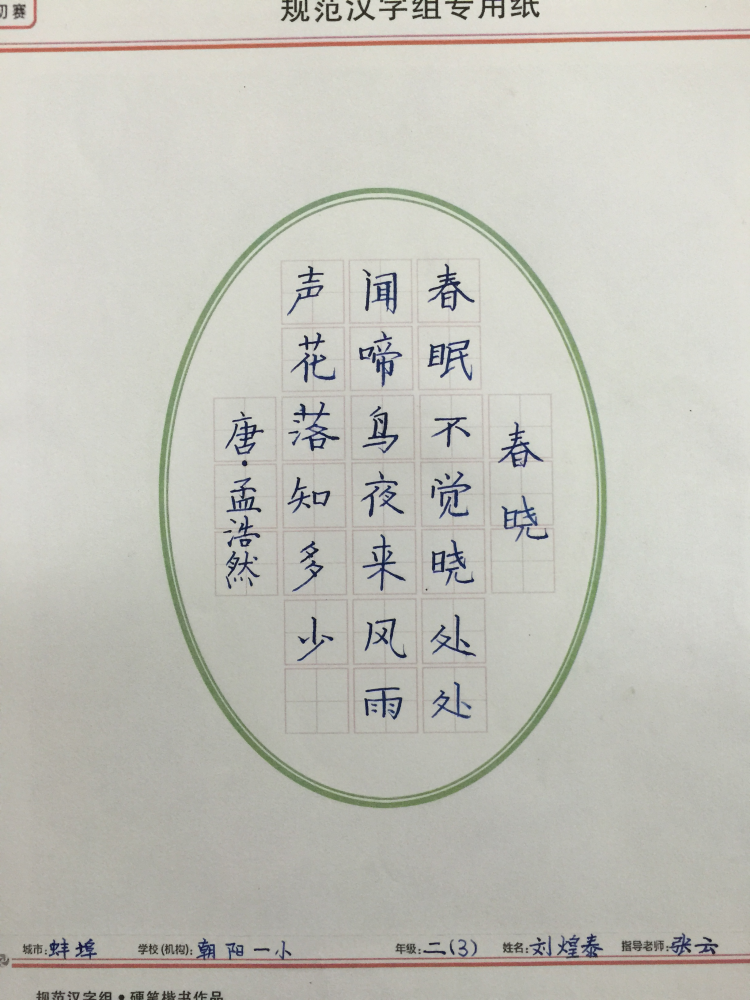 初赛
规范汉字组专用纸
春晓
春眠不觉晓处处
闻啼鸟夜来风雨
声花落知多少
唐·孟浩然
城市:蚌埠 学校(机构):朝阳一小 年级:二(3) 姓名:刘煌泰 指导老师:张云
规范汉字组·硬笔楷书作品